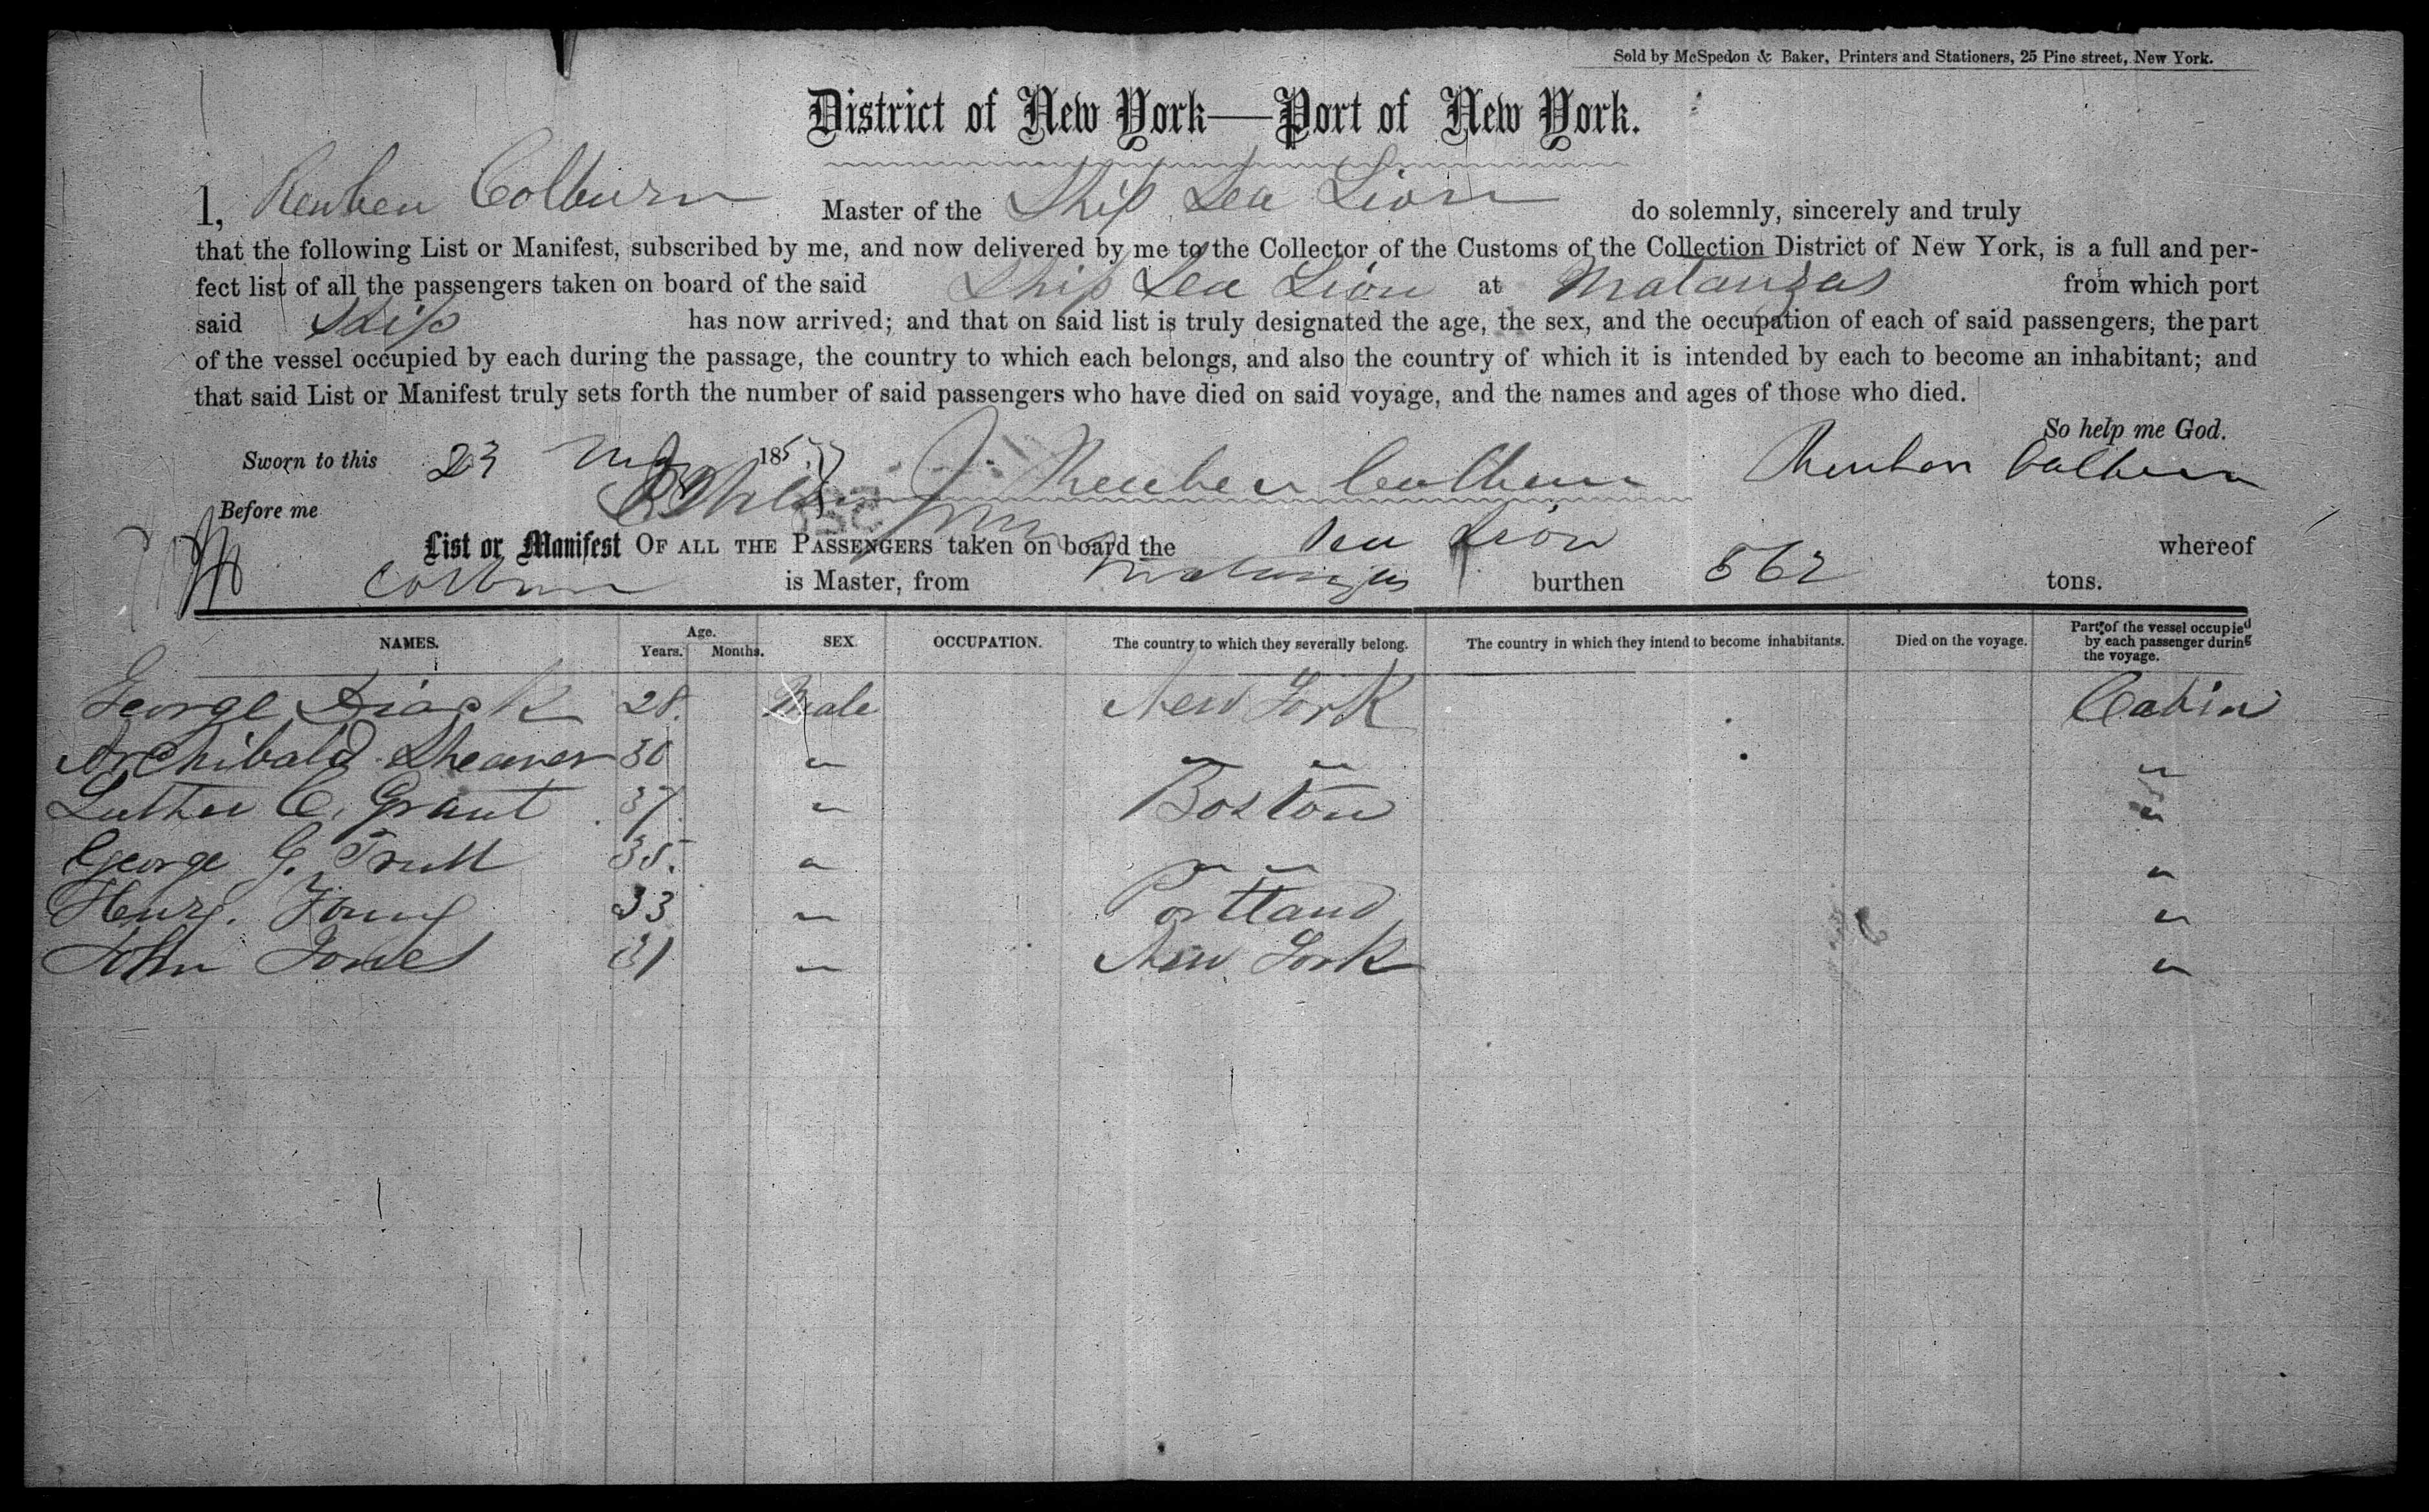 Sold by McSpedon & Baker, Printers and Stationers, 25 Pine street, New York.
District of New York—Port of New York.
I, Reuben Colburn Master of the Ship Sea Lion do solemnly, sincerely and truly
that the following List or Manifest, subscribed by me, and now delivered by me to the Collector of the Customs of the Collection District of New York, is a full and per-
fect list of all the passengers taken on board of the said Ship Sea Lion at Matanzas from which port
said Ship has now arrived; and that on said list is truly designated the age, the sex, and the occupation of each of said passengers, the part
of the vessel occupied by each during the passage, the country to which each belongs, and also the country of which it is intended by each to become an inhabitant; and
that said List or Manifest truly sets forth the number of said passengers who have died on said voyage, and the names and ages of those who died.
So help me God.
Sworn to this 23 185 Reuben Colburn Reuben Colburn
Before me
List or Manifest OF ALL THE PASSENGERS taken on board the Sea Lion whereof
Colburn is Master, from Matanzas burthen 562 tons.
NAMES. Age. Years. Months. SEX. OCCUPATION. The country to which they severally belong. The country in which they intend to become inhabitants. Died on the voyage. Part of the vessel occupied by each passenger during the voyage.
George Diack 28. Male New York Cabin
Archibald Shearer 30 " " " "
Luther C. Grant 37. " Boston "
George G. Trull 35. " " " "
Henry. Young 33 " Portland "
John Jones 31 " New York "